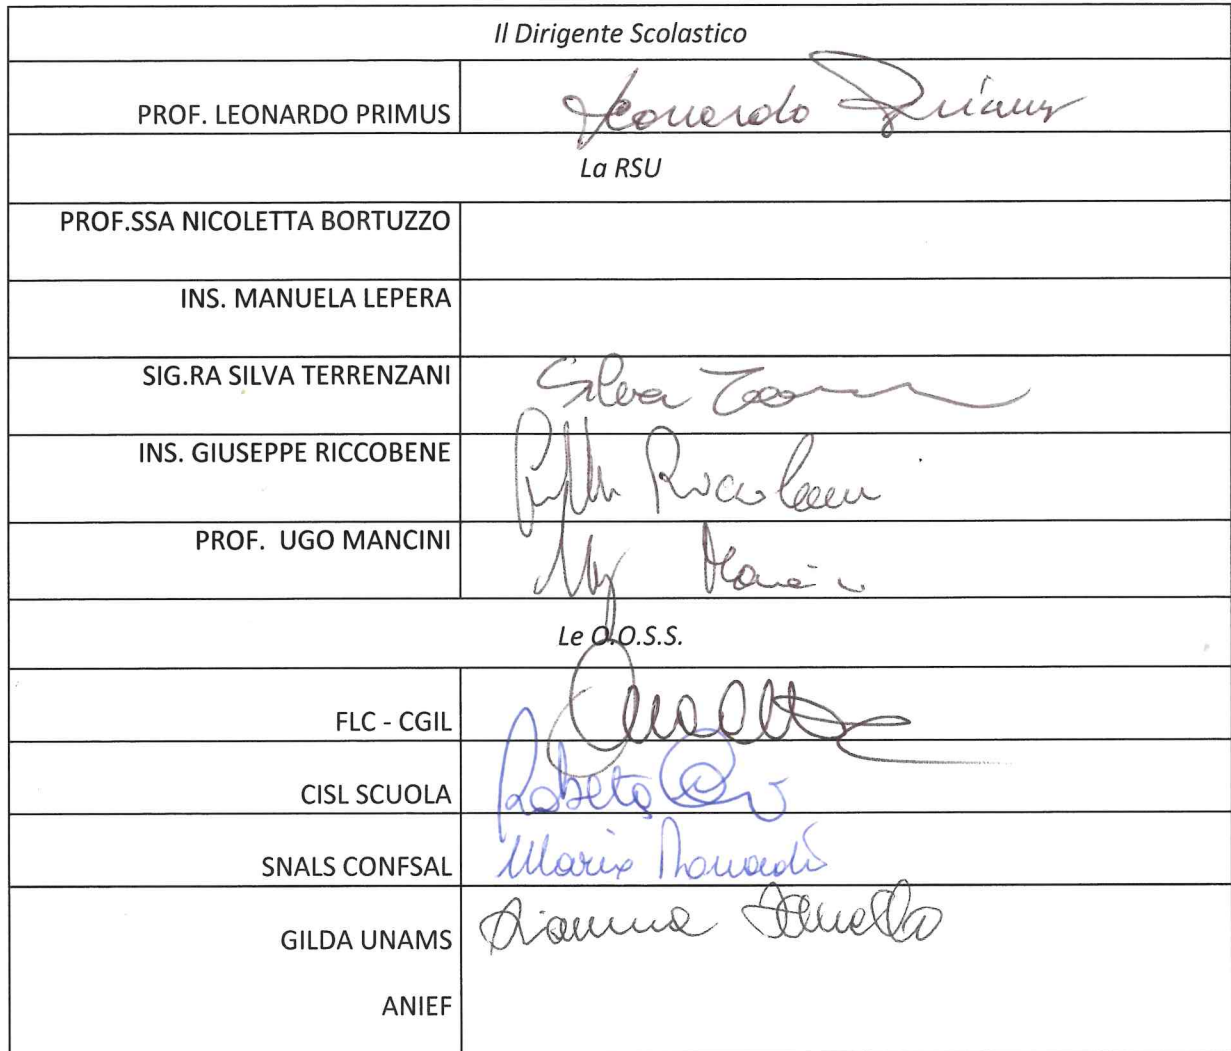 Il Dirigente Scolastico
PROF. LEONARDO PRIMUS Leonardo Primus
La RSU
PROF.SSA NICOLETTA BORTUZZO
INS. MANUELA LEPERA
SIG.RA SILVA TERRENZANI Silva
INS. GIUSEPPE RICCOBENE
PROF. UGO MANCINI
Le O.O.S.S.
FLC - CGIL
CISL SCUOLA Roberto
SNALS CONFSAL
GILDA UNAMS
ANIEF